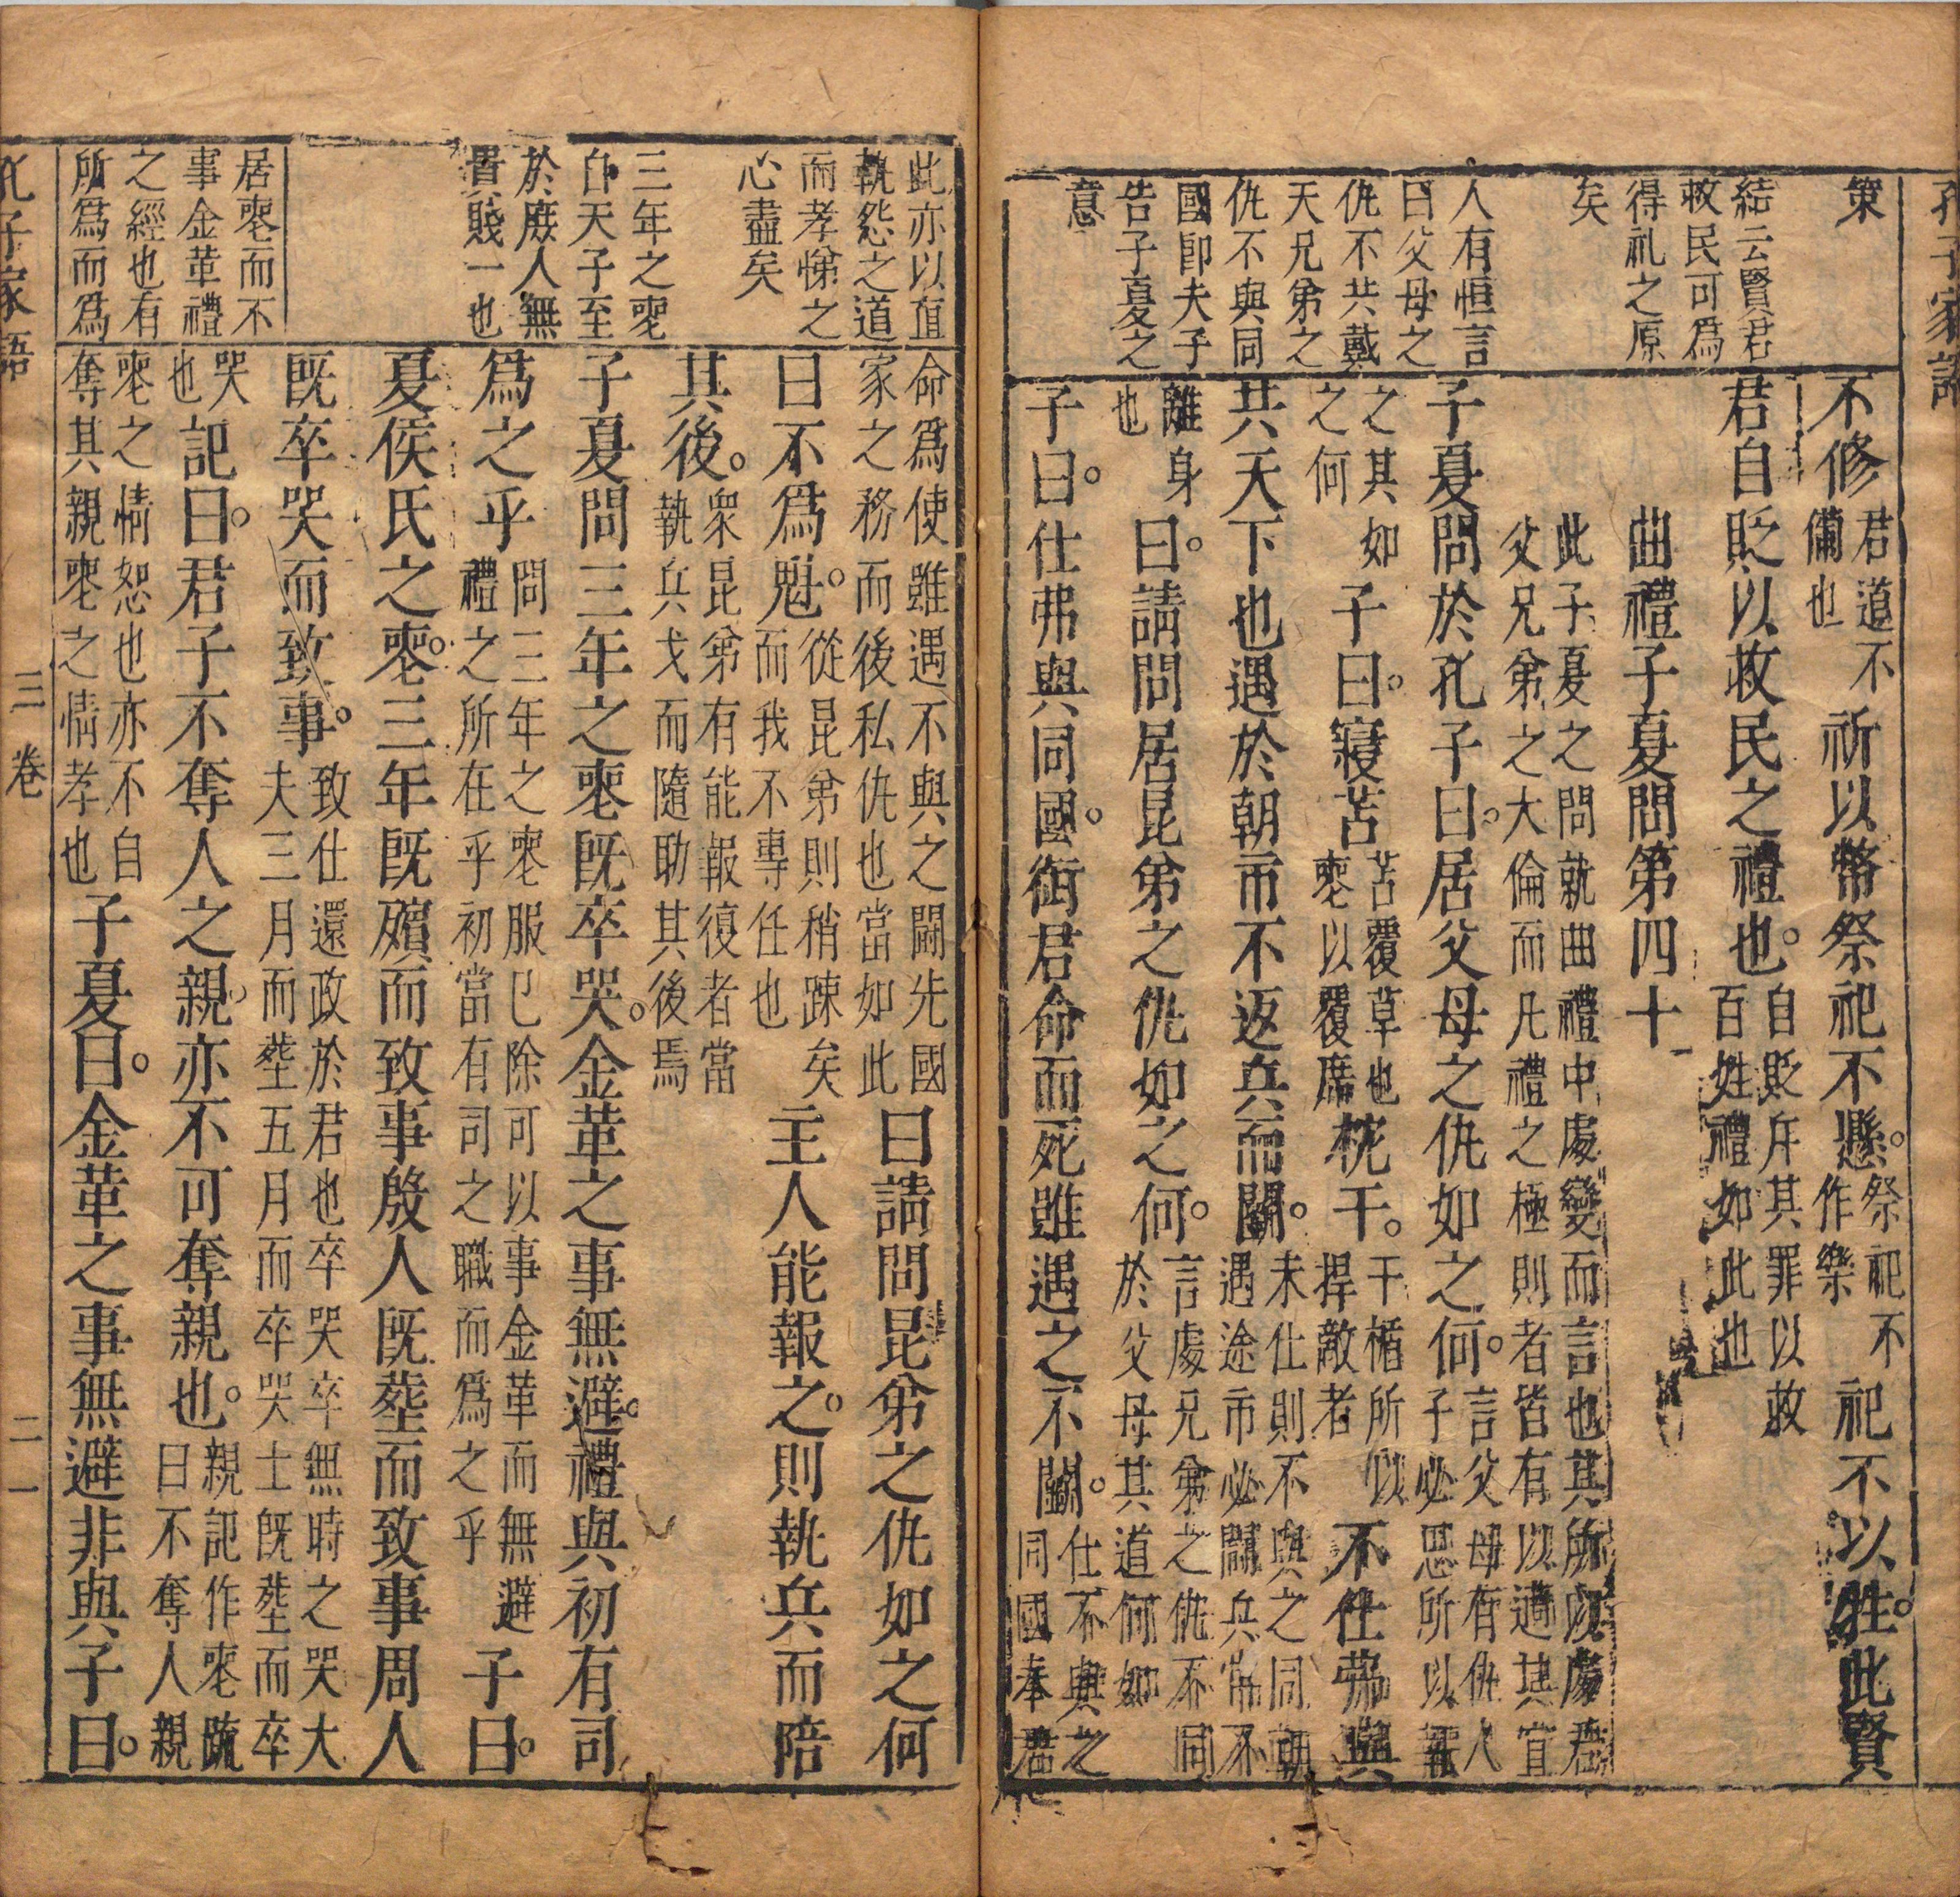 孔子家語
策
結云賢君
救民可爲
得礼之原
矣
人有恒言
曰父母之
仇不共戴
天兄弟之
仇不與同
國即夫子
告子夏之
意
不修君道不
備也祈以幣祭祀不懸。祭祀不
作樂祀不以牲。此賢
君自貶以救民之禮也。自貶斥其罪以救
百姓禮如此也
曲禮子夏問第四十
此子夏之問就曲禮中處變而言也其所以處君
父兄弟之大倫而凡禮之極則者皆有以適其宜
子夏問於孔子曰。居父母之仇如之何。言父母有仇人
子必思所以報
之其如
之何子曰。寢苫苫覆草也
喪以覆席枕干。干楯所以
捍敵者不仕弗與
共天下也遇於朝市不返兵而鬭。未仕則不與之同朝
遇途市必鬭兵常不
離身
也曰。請問居昆弟之仇如之何。言處兄弟之仇不同
於父母其道何如
子曰。仕弗與同國。銜君命而死雖遇之不鬭。仕不與之
同國奉君
此亦以直
執怨之道
而孝悌之
心盡矣
三年之喪
自天子至
於庶人無
貴賤一也
居喪而不
事金革禮
之經也有
所爲而爲
命爲使雖遇不與之鬭先國
家之務而後私仇也當如此曰請問昆弟之仇如之何
曰不爲魁。從昆弟則稍踈矣
而我不專任也主人能報之。則執兵而陪
其後。衆昆弟有能報復者當
執兵戈而隨助其後焉
子夏問三年之喪既卒哭。金革之事無避。禮與初有司
爲之乎問三年之喪服已除可以事金革而無避
禮之所在乎初當有司之職而爲之乎子曰。
夏侯氏之喪。三年既殯而致事殷人既塟而致事周人
既卒哭而致事。致仕還政於君也卒哭卒無時之哭大
夫三月而塟五月而卒哭士既塟而卒
哭
也記曰。君子不奪人之親。亦不可奪親也。親記作喪䟽
曰不奪人親
喪之情恕也亦不自
奪其親喪之情孝也子夏曰。金革之事無避非與子曰。
孔子家語
三卷
二一